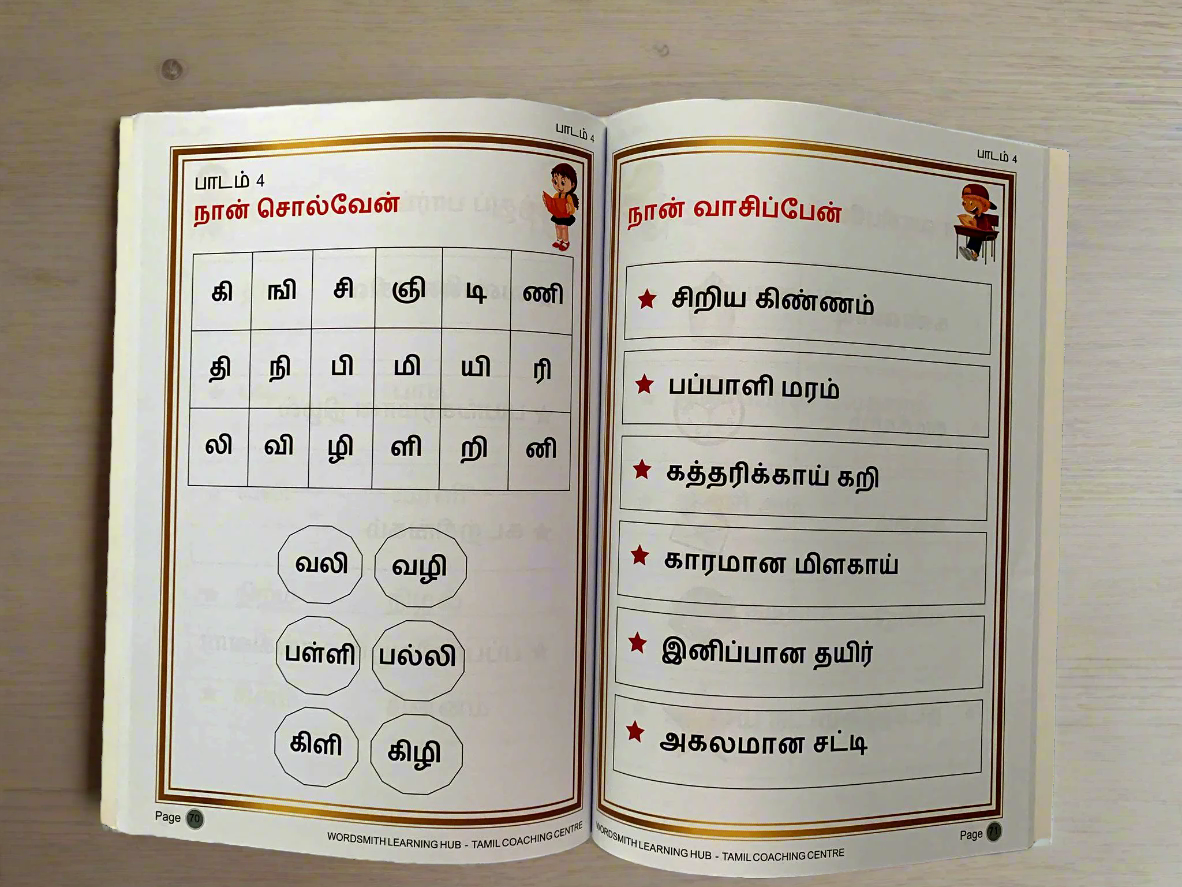 பாடம் 4
பாடம் 4
நான் சொல்வேன்
கி ஙி சி ஞி டி ணி
தி நி பி மி யி ரி
லி வி ழி ளி றி னி
வலி வழி
பள்ளி பல்லி
கிளி கிழி
Page 70
WORDSMITH LEARNING HUB - TAMIL COACHING CENTRE
பாடம் 4
நான் வாசிப்பேன்
சிறிய கிண்ணம்
பப்பாளி மரம்
கத்தரிக்காய் கறி
காரமான மிளகாய்
இனிப்பான தயிர்
அகலமான சட்டி
Page 71
WORDSMITH LEARNING HUB - TAMIL COACHING CENTRE